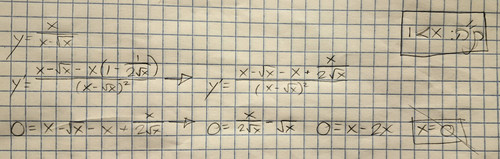 y = x/(x-√x)
1<x :D_f
y' = (x-√x-x(1-1/(2√x)))/(x-√x)² → y' = (x-√x-x+x/(2√x))/(x-√x)²
0 = x-√x-x+x/(2√x) → 0 = x/(2√x)-√x 0=x-2x x=0